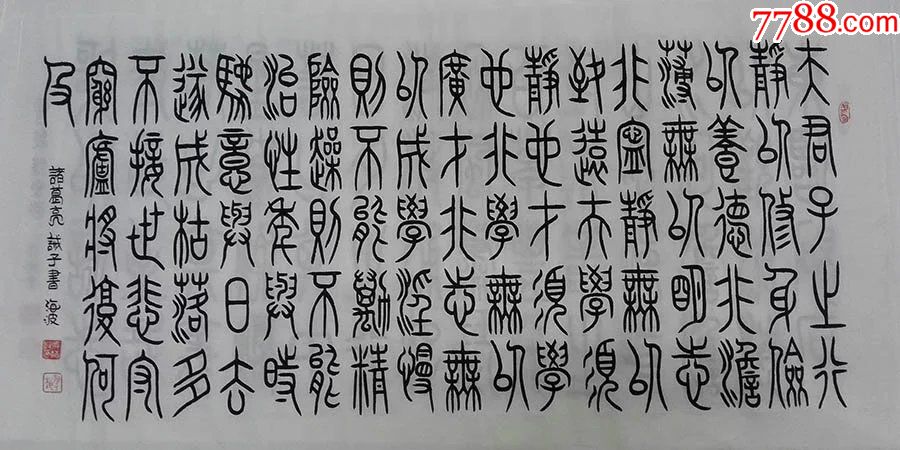 夫君子之行
靜以修身儉
以養德非澹
薄無以明志
非寧靜無以
致遠夫學須
靜也才須學
也非學無以
廣才非志無
以成學淫慢
則不能勵精
險躁則不能
治性年與時
馳意與日去
遂成枯落多
不接世悲守
窮廬將復何
及
諸葛亮 誡子書 海波
7788.com